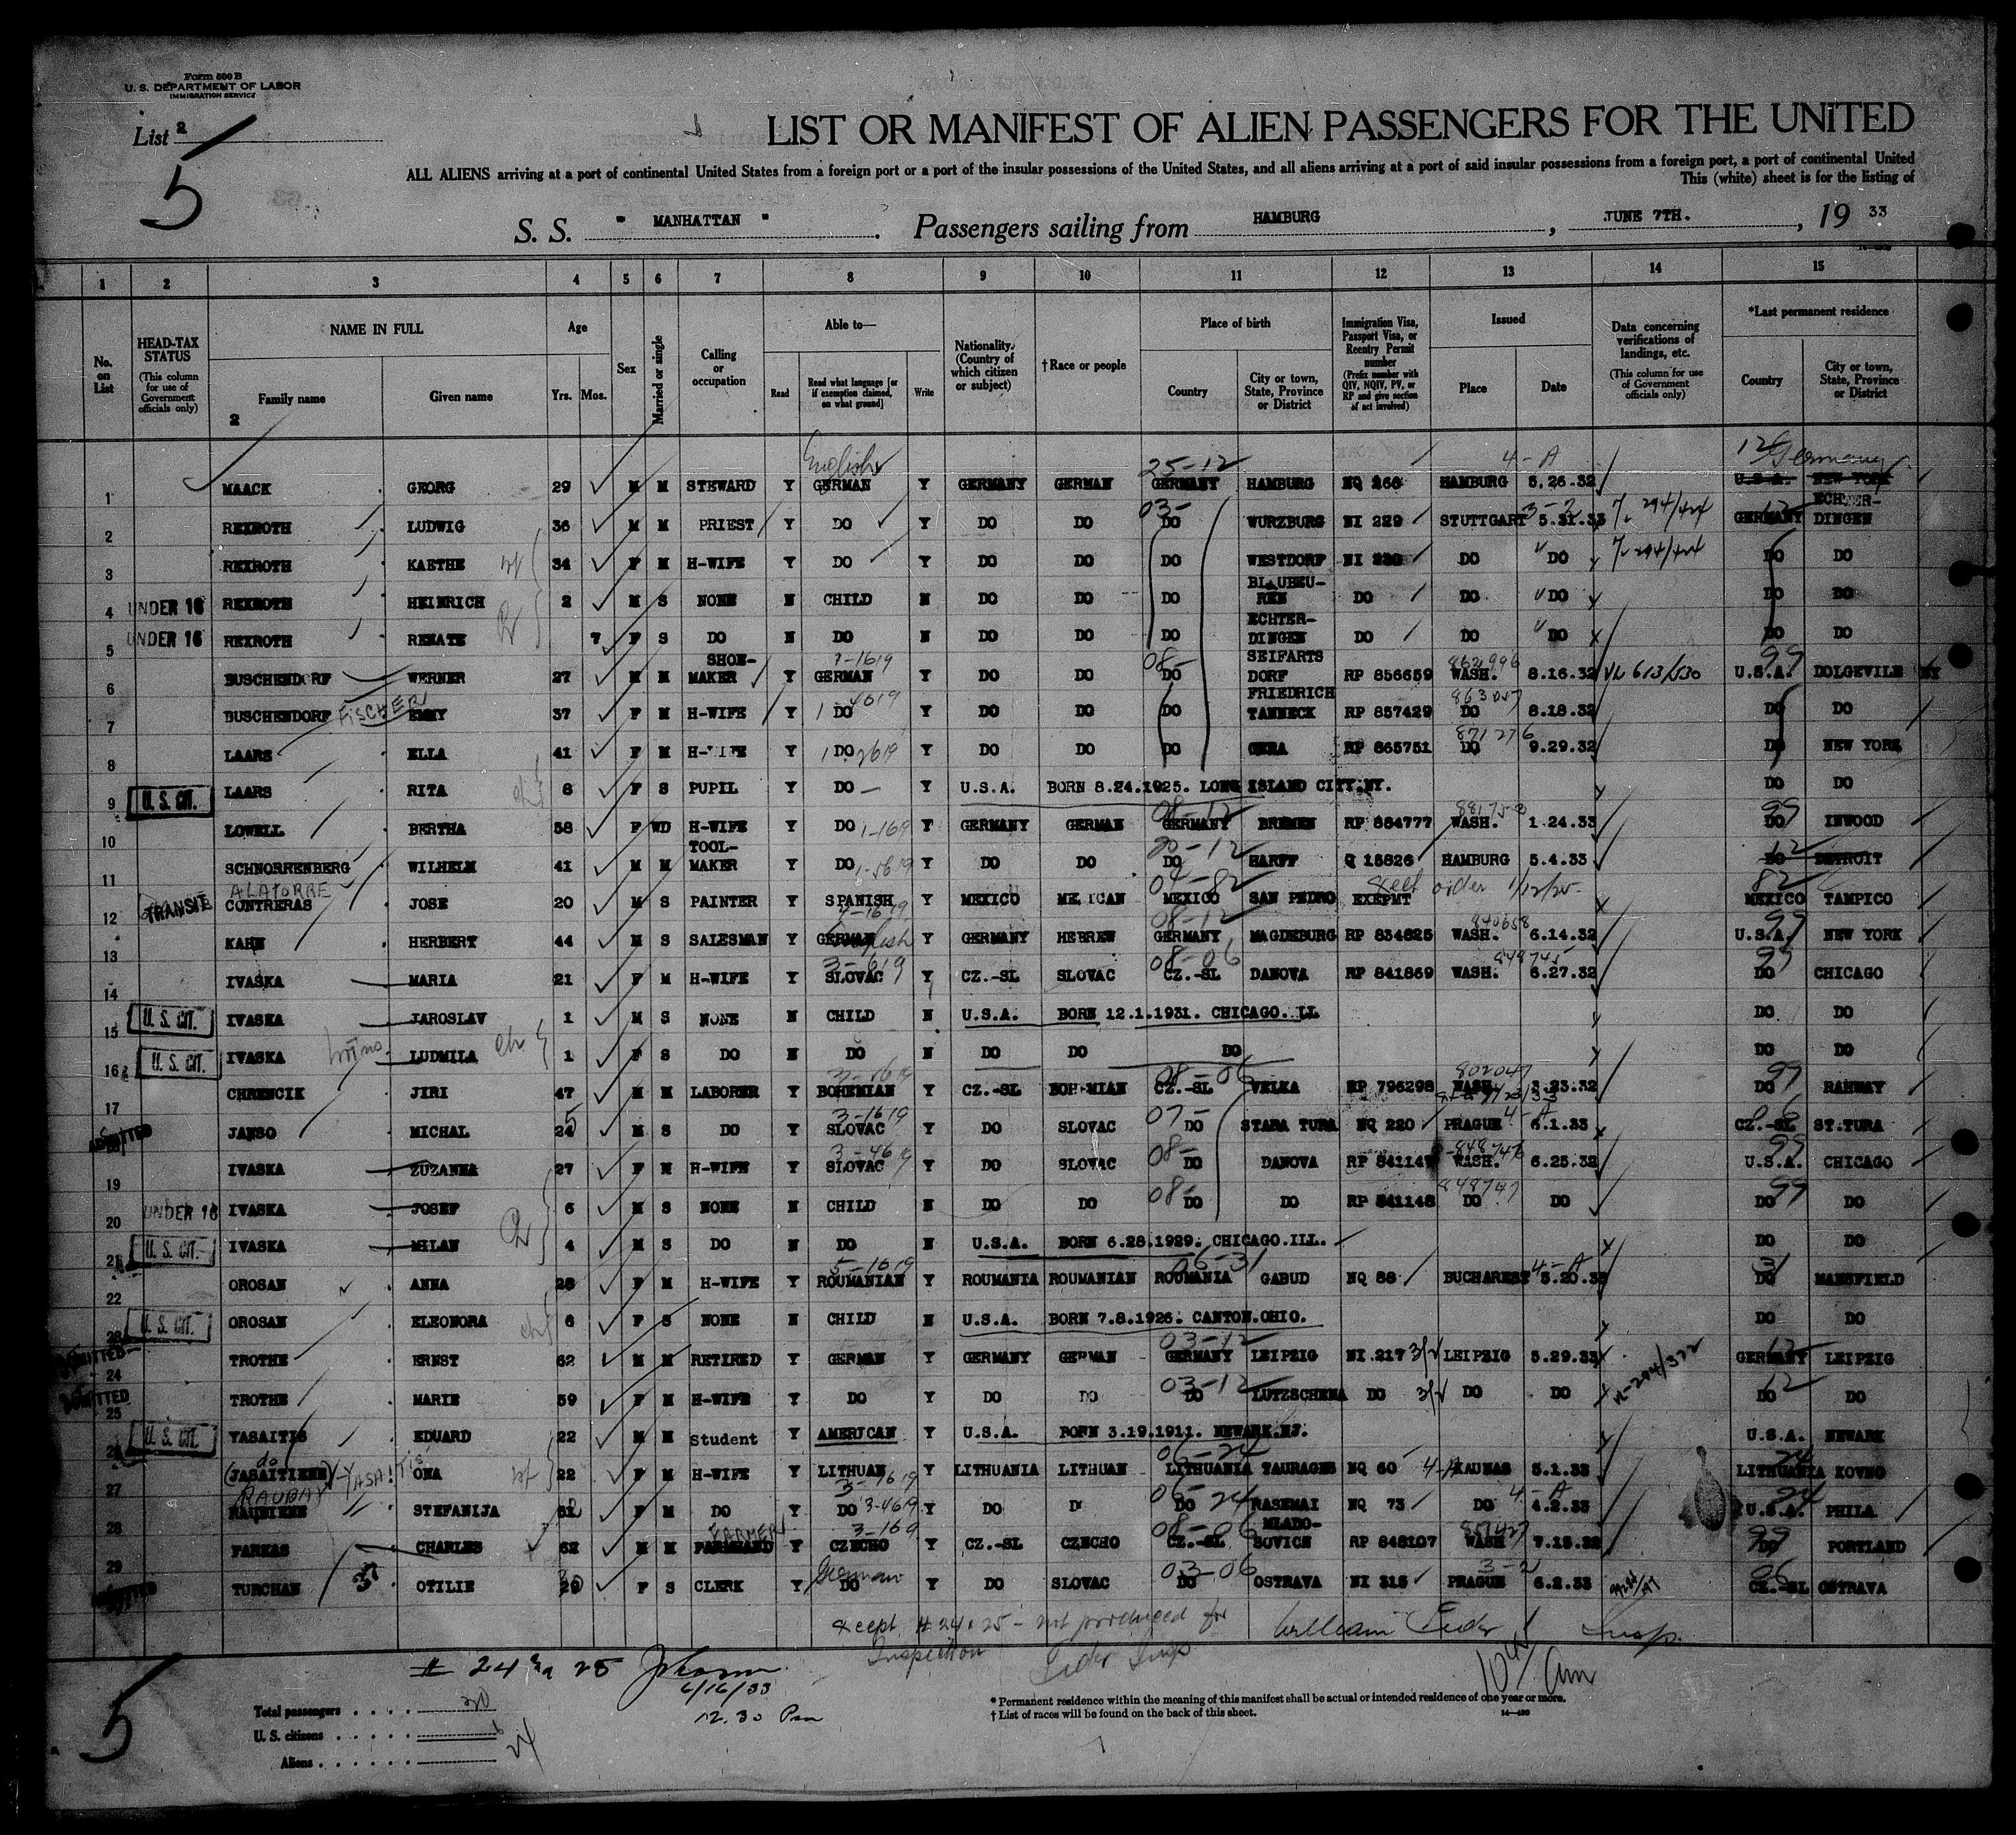 Form 500 B
U. S. DEPARTMENT OF LABOR
IMMIGRATION SERVICE
List 2
5
LIST OR MANIFEST OF ALIEN PASSENGERS FOR THE UNITED
ALL ALIENS arriving at a port of continental United States from a foreign port or a port of the insular possessions of the United States, and all aliens arriving at a port of said insular possessions from a foreign port, a port of continental United
This (white) sheet is for the listing of
S. S. " MANHATTAN " . Passengers sailing from HAMBURG , JUNE 7TH. , 19 33
1 2 3 4 5 6 7 8 9 10 11 12 13 14 15
No. on List
HEAD-TAX STATUS (This column for use of Government officials only)
NAME IN FULL
Family name
Given name
2
Age
Yrs. Mos.
Sex
Married or single
Calling or occupation
Able to—
Read
Read what language [or if exemption claimed, on what ground]
Write
Nationality. (Country of which citizen or subject)
† Race or people
Place of birth
Country
City or town, State, Province or District
Immigration Visa, Passport Visa, or Reentry Permit number (Prefix number with QIV, NQIV, PV, or RP and give section of act involved)
Issued
Place
Date
Data concerning verifications of landings, etc. (This column for use of Government officials only)
*Last permanent residence
Country
City or town, State, Province or District
English 25-12 4-A 12 Germany
1 MAACK GEORG 29 M M STEWARD Y GERMAN Y GERMANY GERMAN GERMANY HAMBURG NQ 266 HAMBURG 5.26.32 U.S.A. NEW YORK
2 REXROTH LUDWIG 36 M M PRIEST Y DO Y DO DO 03- DO WURZBURG NI 229 STUTTGART 3-2 5.31.33 7-294/424 GERMANY ECHTER-DINGEN
3 REXROTH KAETHE wf 34 F M H-WIFE Y DO Y DO DO DO WESTDORF NI 230 DO DO 7-294/424 DO DO
4 UNDER 16 REXROTH HEINRICH 2 M S NONE N CHILD N DO DO DO BLAUBEU-REN DO DO DO DO DO
5 UNDER 16 REXROTH RENATE 7 F S DO N DO N DO DO DO ECHTER-DINGEN DO DO DO DO DO
6 BUSCHENDORF WERNER 27 M M SHOE-MAKER Y GERMAN Y DO DO 08- DO SEIFARTS DORF RP 856659 862996 WASH. 8.16.32 VL 613/530 99 U.S.A. DOLGEVILE NY
7 BUSCHENDORF FISCHER EMMY 37 F M H-WIFE Y DO Y DO DO DO FRIEDRICH TANNECK RP 857429 863047 DO 8.18.32 DO DO
8 LAARS ELLA 41 F M H-WIFE Y DO Y DO DO DO GERA RP 865751 871276 DO 9.29.32 DO NEW YORK
9 U. S. CIT. LAARS RITA ch 8 F S PUPIL Y DO Y U.S.A. BORN 8.24.1925. LONG ISLAND CITY.NY. DO DO
10 LOWELL BERTHA 58 F WD H-WIFE Y DO 1-1619 Y GERMANY GERMAN 08-12 GERMANY BREMEN RP 884777 WASH. 1.24.33 99 DO INWOOD
11 SCHNORRENBERG WILHELM 41 M M TOOL-MAKER Y DO Y DO DO 20-12 DO HARFF Q 15826 HAMBURG 5.4.33 12 DO DETROIT
12 TRANSIT ALATORRE CONTRERAS JOSE 20 M S PAINTER Y SPANISH Y MEXICO MEXICAN 04-82 MEXICO SAN PEDRO EXEPMT 82 MEXICO TAMPICO
13 KAHN HERBERT 44 M S SALESMAN Y GERMAN English Y GERMANY HEBREW 08-12 GERMANY MAGDEBURG RP 834825 840658 WASH. 6.14.32 99 U.S.A. NEW YORK
14 IVASKA MARIA 21 F M H-WIFE Y 3-1619 SLOVAC Y CZ.-SL SLOVAC 08-06 CZ.-SL DANOVA RP 841869 848745 WASH. 6.27.32 99 DO CHICAGO
15 U. S. CIT. IVASKA JAROSLAV 1 M S NONE N CHILD N U.S.A. BORN 12.1.1931. CHICAGO. IL DO DO
16 U. S. CIT. IVASKA twins LUDMILA ch 1 F S DO N DO N DO DO DO DO DO
17 CHRENCIK JIRI 47 M M LABORER Y BOHEMIAN Y CZ.-SL BOHEMIAN 08-06 CZ.-SL VELKA RP 796298 802047 WASH. 3.23.32 97 DO RAHWAY
ADMITTED JANSO MICHAL 24 M S DO Y 3-1619 SLOVAC Y DO SLOVAC 07- DO STARA TURA NQ 220 PRAGUE 4-A 6.1.33 06 CZ.-SL ST.TURA
19 IVASKA ZUZANNA 27 F M H-WIFE Y 3-4619 SLOVAC Y DO SLOVAC 08- DO DANOVA RP 84114 848746 WASH. 6.25.32 99 U.S.A. CHICAGO
20 UNDER 16 IVASKA JOSEF 6 M S NONE N CHILD N DO DO 08- DO DO RP 841148 848747 DO DO 99 DO DO
21 U. S. CIT. IVASKA MILAN 4 M S DO N DO N U.S.A. BORN 6.28.1929. CHICAGO.ILL. DO DO
22 OROSAN ANNA 28 F M H-WIFE Y 5-1619 ROUMANIAN Y ROUMANIA ROUMANIAN 06-31 ROUMANIA GABUD NQ 88 BUCHAREST 4-A 5.20.33 31 DO MANSFIELD
23 U. S. CIT. OROSAN ELEONORA ch 6 F S NONE N CHILD N U.S.A. BORN 7.8.1926. CANTON.OHIO. DO DO
24 ADMITTED TROTHE ERNST 62 M M RETIRED Y GERMAN Y GERMANY GERMAN 03-12 GERMANY LEIPZIG NI.217 3/2 LEIPZIG 5.29.33 12 GERMANY LEIPZIG
25 ADMITTED TROTHE MARIE 59 F M H-WIFE Y DO Y DO DO 03-12 DO LUTZSCHENA DO 3/2 DO DO 12 DO DO
26 U. S. CIT. YASAITIS EDUARD 22 M M Student Y AMERICAN Y U.S.A. BORN 3.19.1911. NEWARK.NJ. U.S.A. NEWARK
27 do (JASAITIENE) YASAITIS ONA wf 22 F M H-WIFE Y LITHUAN Y LITHUANIA LITHUAN 06-24 LITHUANIA TAURAGES NQ 60 4-A KAUNAS 5.1.33 24 LITHUANIA KOVNO
28 STEFANIJA F M DO Y DO 3-4619 Y DO 06-24 DO RASEMAI NQ 73 DO 4-A 4.2.33 24 U.S.A. PHILA
29 FARKAS CHARLES 62 M M FARMER FARMHAND Y 3-169 CZECHO Y CZ.-SL CZECHO 08-06 CZ.-SL MLADO-SOVICE RP 848107 WASH 7.15.32 99 DO PORTLAND
ADMITTED TURCHAN OTILIE 29 F S CLERK Y German DO Y DO SLOVAC 03-06 DO OSTRAVA NI 315 3-2 PRAGUE 6.2.33 06 CZ.-SL OSTRAVA
Except #24 & 25 - not produced for Inspection
# 24 & 25
6/16/33
12.30 Pm
Total passengers 30
U. S. citizens 6
Aliens 24
* Permanent residence within the meaning of this manifest shall be actual or intended residence of one year or more.
† List of races will be found on the back of this sheet.
5